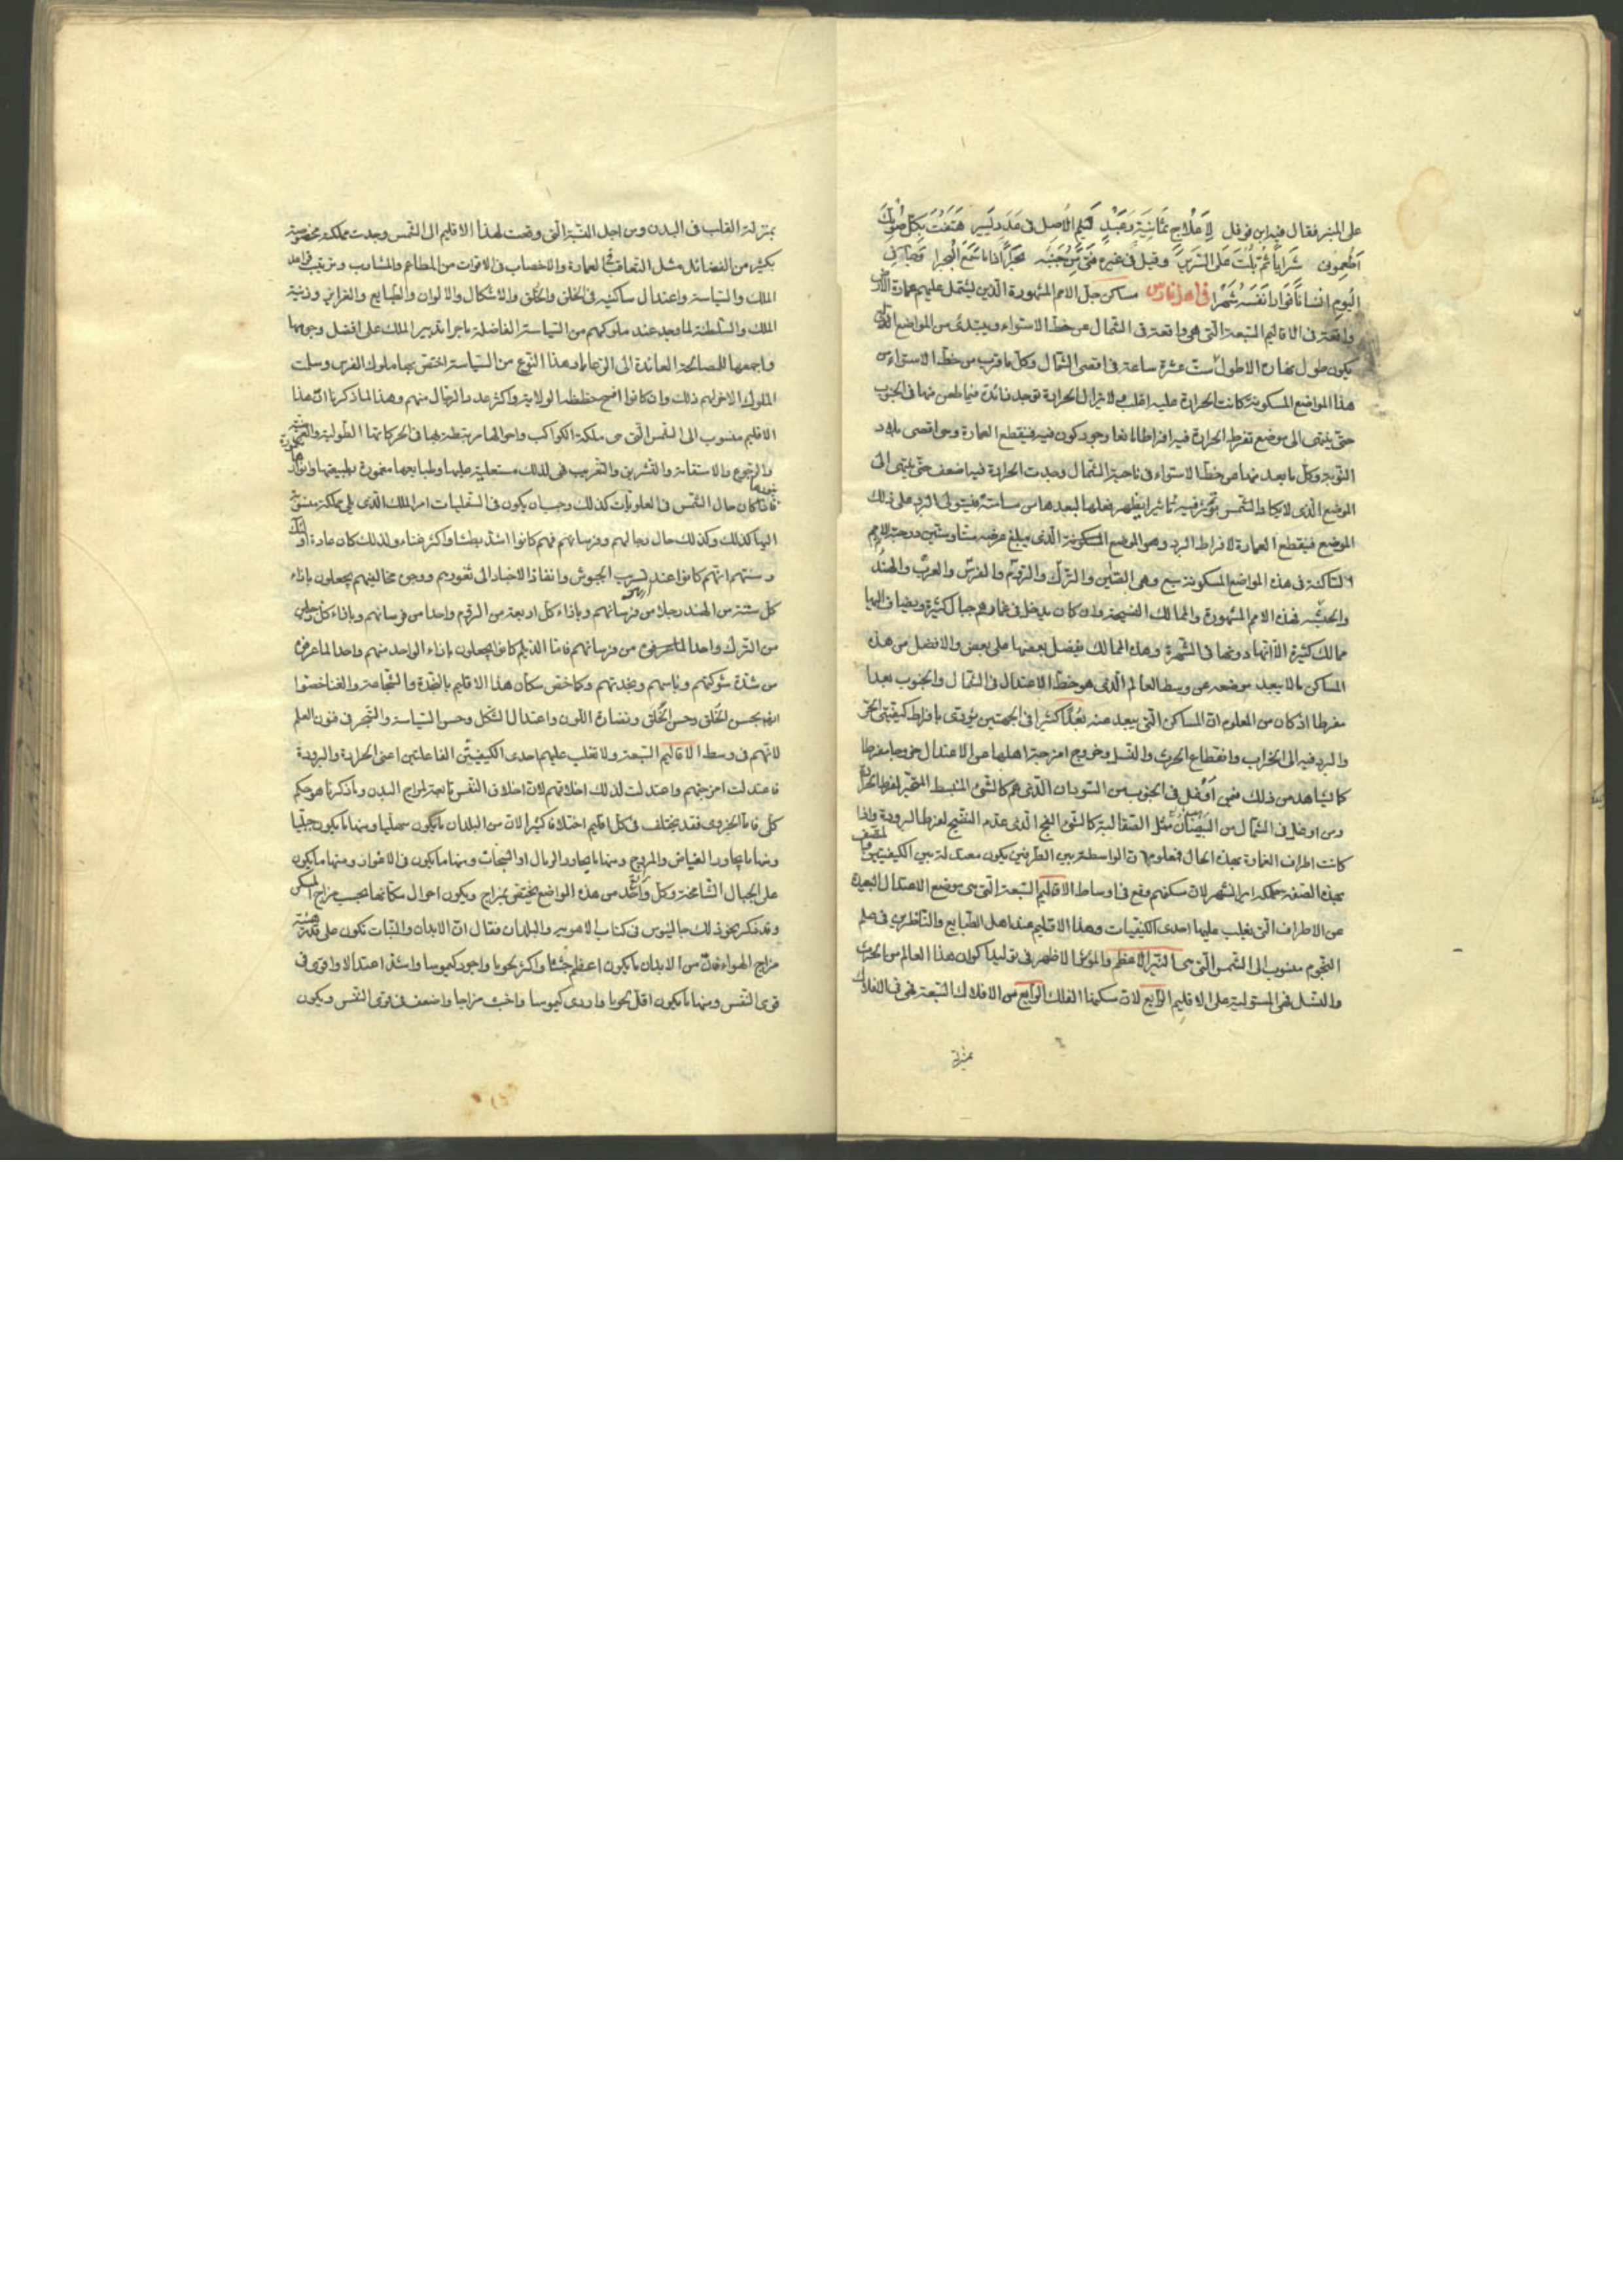 على المنبر فقال فيه ابن نوفل لاعلاج ثمانية وعبد لئيم الاصل فى عدد يسير هتفت بكل صوتك
اطعمونى شرابا ثم بلت على السرير وقيل فى غيره
اليوم انسانا فوارا نفسه شهرا فى اهل فارس مساكن جل الامم المشهورة الذين يشتمل عليهم عمارة الارض
واقعة فى الاقاليم السبعة التى هى واقعة فى الشمال عن خط الاستواء ويبتدئ من المواضع الذى
يكون طول نهاره الاطول ست عشرة ساعة فى اقصى الشمال وكل ما قرب من خط الاستواء من
هذا المواضع المسكونة كانت الحرارة عليه اغلب ولا يزال الحرارة توجد زائدة فيما طعن منها فى الجنوب
حتى ينتهى الى موضع تفرط الحرارة فيه افراطا مانعا وجود كون فيه فينقطع العمارة وهو اقصى بلاد
النوبة وكل ما بعد منها عن خط الاستواء فى ناحية الشمال وجدت الحرارة فيه اضعف حتى ينتهى الى
الموضع الذى لا يكاد الشمس يؤثر فيه تأثيرا يظهر فعلها لبعدها من مسامتة فيتولى البرد على ذلك
الموضع فينقطع العمارة لافراط البرد وهو الموضع المسكونة الذى مبلغ عرضه ستا وستين درجة والامم
الساكنة فى هذه المواضع المسكونة سبع وهى الصين والترك والروم والفرس والعرب والهند
والحبشه فهذه الامم المشهورة والممالك الفسيحة وان كان يدخل فى غمارهم جبال كثيرة ويضاف اليها
ممالك كثيرة الا انها دونها فى الشهرة وهذه الممالك يفضل بعضها على بعض والافضل من هذه
المساكن ما لا يبعد موضعه عن وسط العالم الذى هو خط الاعتدال فى الشمال والجنوب بعدا
مفرطا اذ كان من المعلوم ان المساكن التى يبعد عنه بعدا كثيرا فى الجهتين يؤدى بافراط كيفيتى الحر
والبرد فيه الى الخراب وانقطاع الحرث والنسل وخروج امزجة اهلها عن الاعتدال خروجا مفرطا
كما يشاهد من ذلك فمن اوغل فى الجنوب من السودان الذى هم كالشئ المنبسط المتغير لفرط الحرارة
ومن اوغل فى الشمال من البيضان مثل الصقالبة كالشئ الفج الذى عدم النضج لفرط البرودة واذا
كانت اطراف العمارة بهذه الحال فمعلوم ان الواسطة بين الطرفين يكون معتدلة بين الكيفيتين
بهذه الصفة مملكة ايرانشهر لان سكنهم وقع فى اوساط الاقاليم السبعة التى هى موضع الاعتدال البعيدة
عن الاطراف التى يغلب عليها احدى الكيفيات وهذا الاقليم عند اهل الطبايع والناظرين فى علم
النجوم منسوب الى الشمس التى هى النير الاعظم والمؤثر الاظهر فى توليد اكوان هذا العالم من الحرث
والنسل فهى المستولية على الاقليم الرابع لان سكنها الفلك الرابع من الافلاك السبعة فهى فى الافلاك
بمنزلة
بمنزلة القلب فى البدن ومن اجل النسبة التى وقعت لهذا الاقليم الى الشمس وجدت مملكته مخصوصة
بكثير من الفضائل مثل التعاقب فى العمارة والاخصاب فى الاقوات من المطاعم والمشارب وترتيب قواعد
الملك والسياسة واعتدال ساكنيه فى الخلق والخلق والاشكال والالوان والطبايع والغرايز وزينة
الملك والسلطنة لما وجد عند ملوكهم من السياسة الفاضلة باجراء تدبير الملك على افضل وجوهها
واجمعها للمصالحة العائدة الى الرعايا وهذا النوع من السياسة اختص بها ملوك الفرس وسلمت
الملوك الاخر لهم ذلك وان كانوا افسح خططا لولاية واكثر عدد الرجال منهم وهذا لما ذكرنا ان هذا
الاقليم منسوب الى الشمس التى هى ملكة الكواكب واحوالها مرتبطة بها فى الحركاتها الطولية والعرضية
والرجوع والاستقامة والتشريق والتغريب فهى لذلك مستعلية عليها وطبايعها مغمورة بطبيعتها وانوارها
فاذا كان حال الشمس فى العلويات كذلك وجب ان يكون فى السفليات امر الملك الذى يلى مملكة منسوبة
اليها كذلك وكذلك حال رجالهم وفرسانهم فهم كانوا اشد بطشا واكثر غناء ولذلك كان عادة اولئك
وسنتهم انهم كانوا عند تسريب الجيوش وانفاذ الاخبار الى ثغورهم ووجوه مخالفيهم يجعلون بازاء
كل ستة من الهند رجلا من فرسانهم وبازاء كل اربعة من الروم واحدا من فرسانهم وبازاء كل رجلين
من الترك واحدا من فرسانهم فاما الديلم كانوا يجعلون بازاء الواحد منهم واحدا لما عرفوه
من شدة شوكتهم وباسهم ونجدتهم وكما خص سكان هذا الاقليم بالنجدة والشجاعة والغنا خصوا
ايضا بحسن الخلق وحسن الخلق ونضارة اللون واعتدال الشكل وحسن السياسة والتبحر فى فنون العلم
لانهم فى وسط الاقاليم السبعة ولا تغلب عليهم احدى الكيفيتين الفاعلتين اعنى الحرارة والبرودة
فاعتدلت امزجتهم واعتدلت لذلك اخلاقهم لان اخلاق النفس تابعة لمزاج البدن وما ذكرناه هو حكم
كلى فاما الجزوى فقد يختلف فى كل اقليم اختلافا كثيرا لان من البلدان ما يكون سهليا ومنها ما يكون جبليا
ومنها ما يجاور الغياض والمروج ومنها ما يجاور الرمال او السبخات ومنها ما يكون فى الاغوار ومنها ما يكون
على الجبال الشامخة وكل واحد من هذه المواضع يختص بمزاج ويكون احوال سكانها بحسب مزاج المسكن
وقد ذكر نحو ذلك جالينوس فى كتاب الاهوية والبلدان فقال ان الابدان والنبات تكون على
مزاج الهواء فان من الابدان ما يكون اعظم جثثا واكثر نحويا واجود كيموسا واشد اعتدالا واقوى فى
قوى النفس ومنها ما يكون اقل نحويا واردى كيموسا واخبث مزاجا واضعف فى قوى النفس ويكون